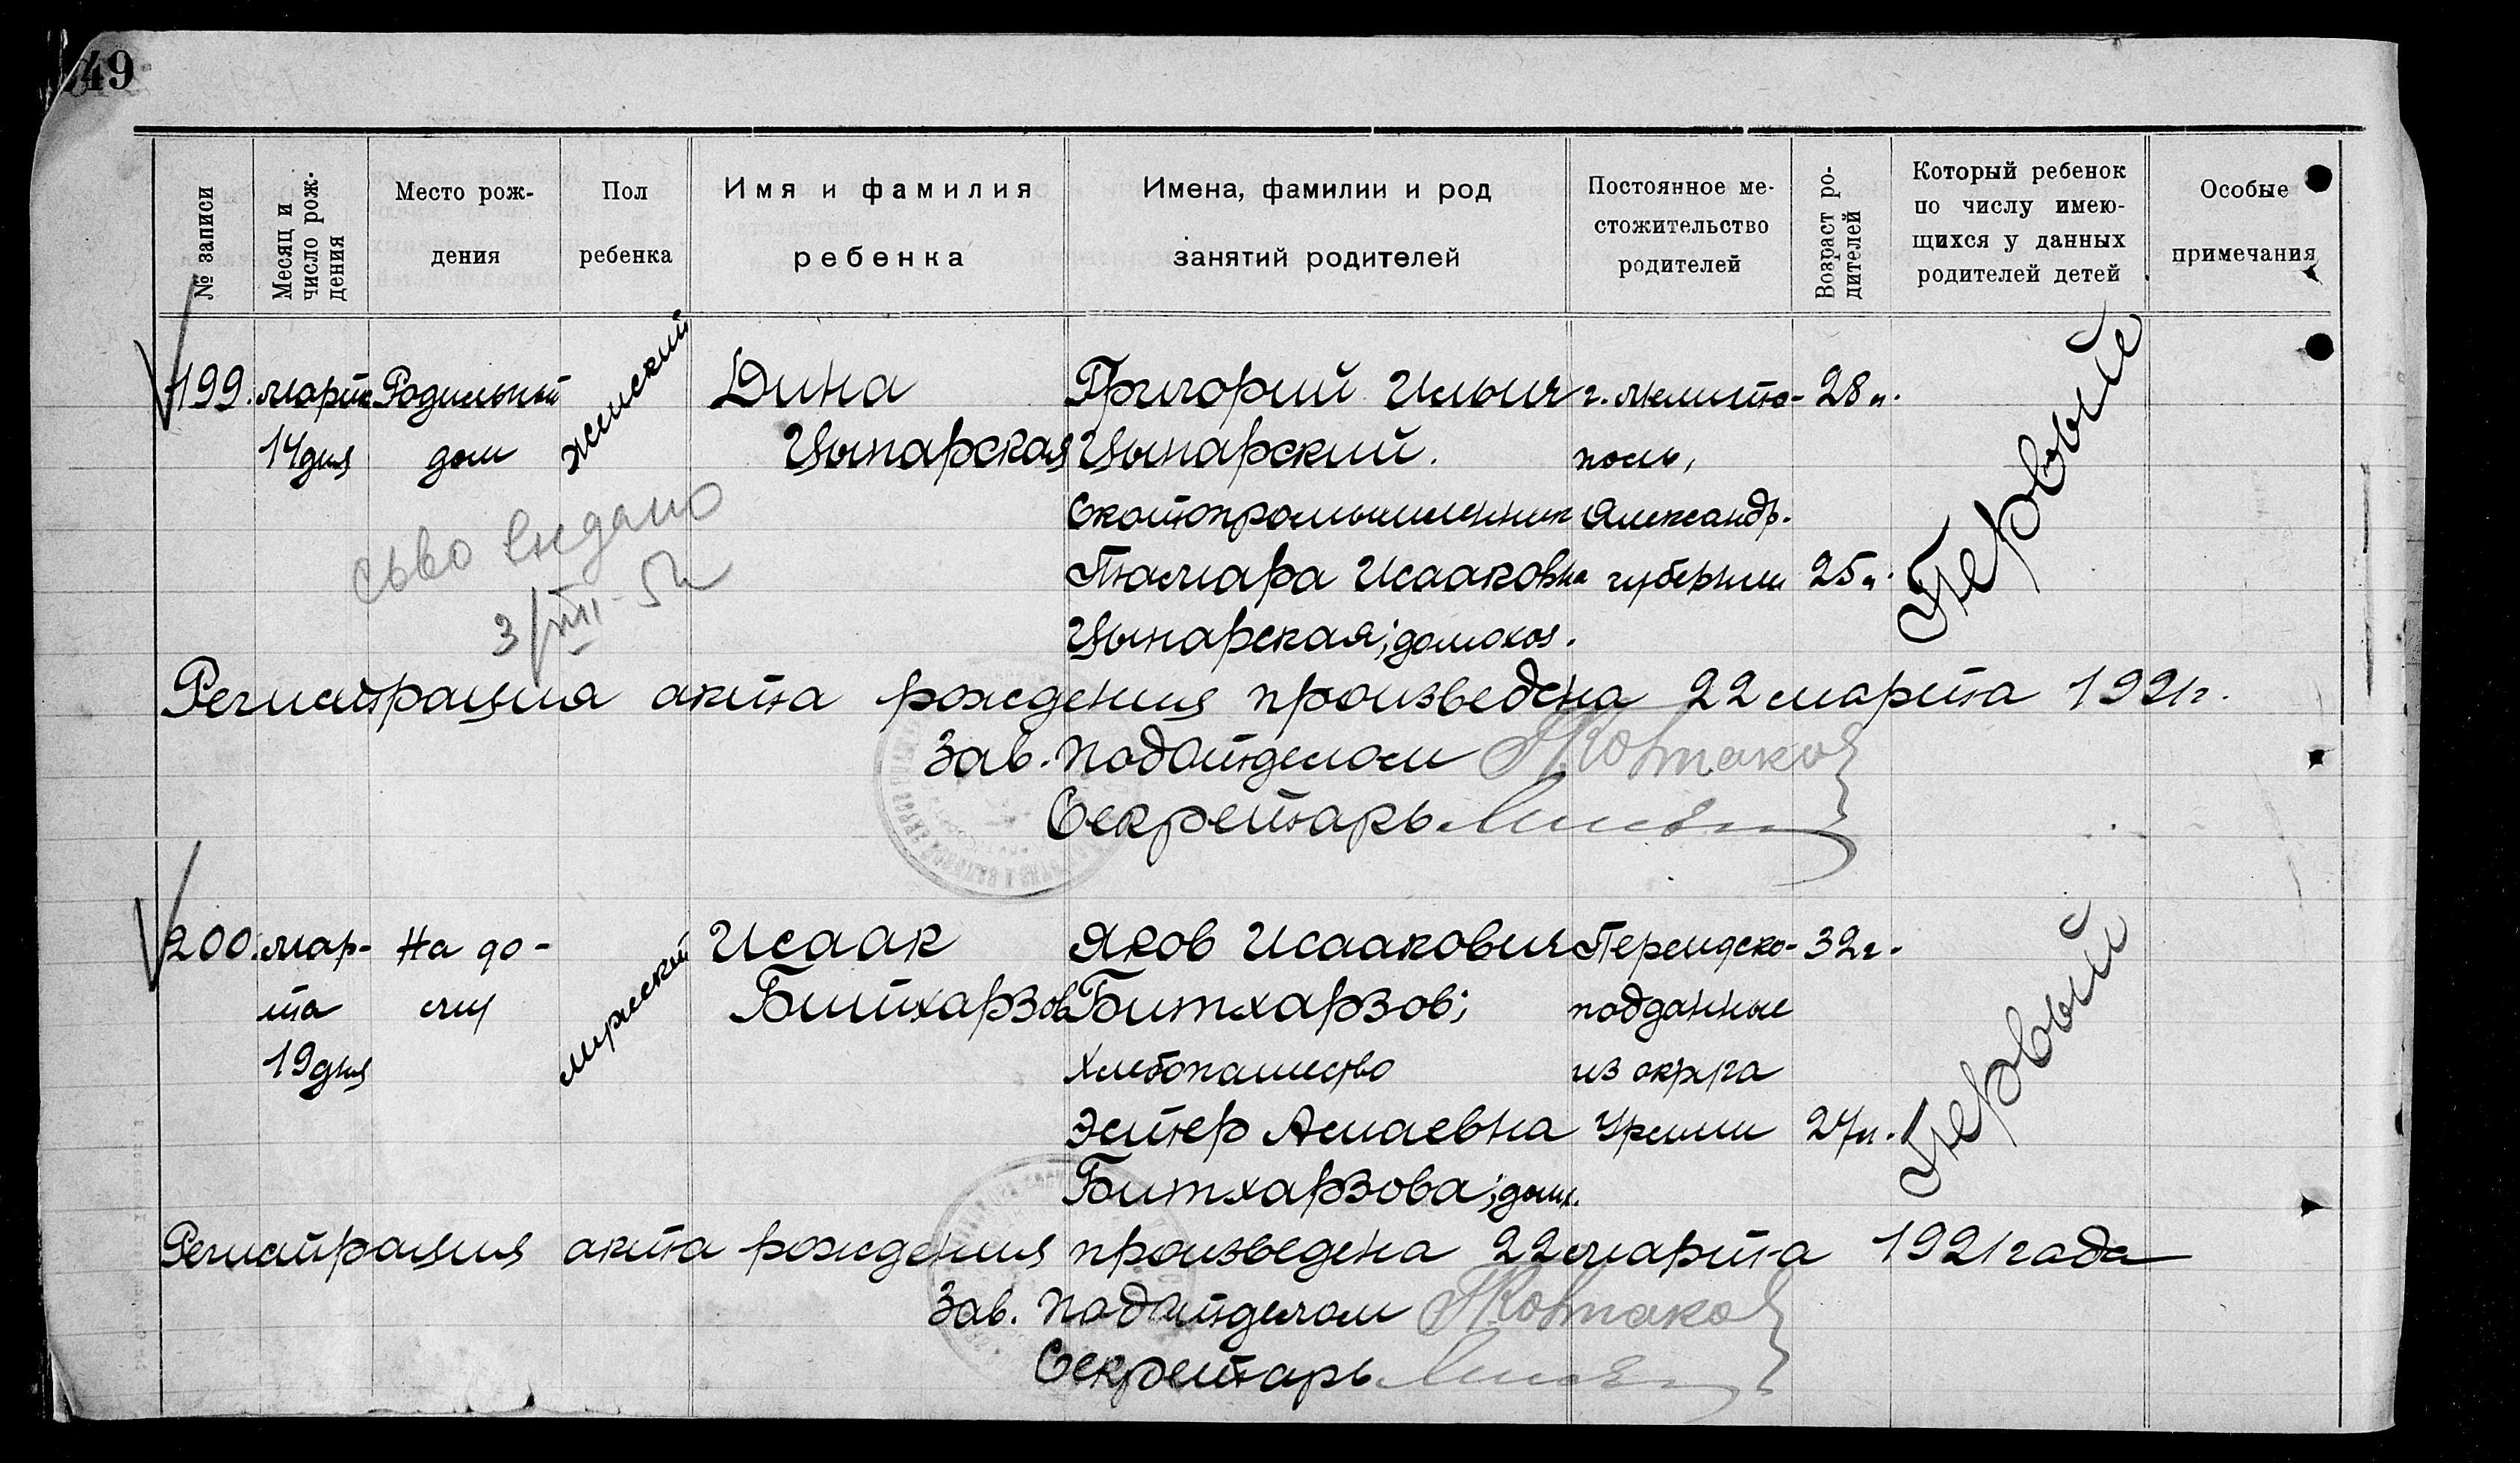 49
№ записи
Месяц и число рождения
Место рождения
Пол ребенка
Имя и фамилия ребенка
Имена, фамилии и род занятий родителей
Постоянное местожительство родителей
Возраст родителей
Который ребенок по числу имеющихся у данных родителей детей
Особые примечания
199. марта Родильный женский Дина Григорий Ильич г. Мелито- 28 л. Первый
14 дня дом Цынарская Цынарский. поль,
Скотопромышленник Александр.
Тамара Исааковна губернии 25 л.
Цынарская; домохоз.
св-во выдано
3/VIII-52
Регистрация акта рождения произведена 22 марта 1921 г.
Зав. Подотделом
Секретарь
200. мар- На до- мужской Исаак Яков Исаакович Персидско- 32 г. Первый
та му Битхарзов Битхарзов; подданные
19 дня Хлебопашество из округа
Эстер Аслаевна Урмии 27 л.
Битхарзова; домх.
Регистрация акта рождения произведена 22 марта 1921 года
Зав. Подотделом
Секретарь